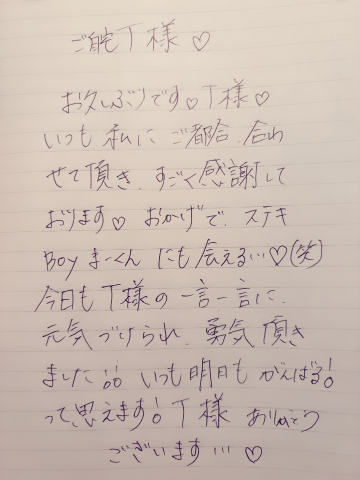 ご自宅T様♡
お久しぶりです♡T様♡
いつも私にご都合、合わ
せて頂き、すごく感謝して
おります♡おかげで、ステキ
Boyまーくんにも会える…♡(笑)
今日もT様の一言一言に、
元気づけられ、勇気頂き
ました!! いつも明日もがんばる!
って思えます!T様ありがとう
ございます…♡